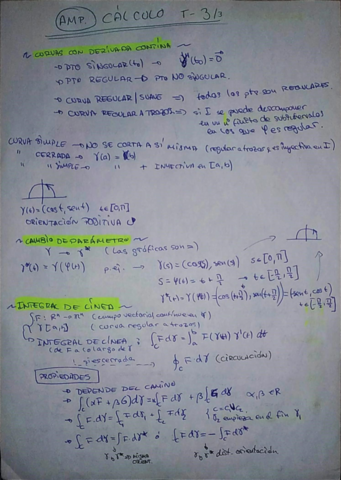 AMP. CÁLCULO T-3/3
~ CURVAS CON DERIVADA CONTINUA ~
→ PTO SINGULAR (t₀) γ'(t₀) = 0⃗
→ PTO REGULAR → PTO NO SINGULAR.
→ CURVA REGULAR / SUAVE ⇒ todos los ptos son REGULARES.
→ CURVA REGULAR A TROZOS ⇒ si I se puede descomponer
en un nº finito de subintervalos
en los que γ es regular.
CURVA SIMPLE → NO SE CORTA A SÍ MISMA (regular a trozos, es inyectiva en I)
" CERRADA → γ(a) = γ(b)
" " SIMPLE → " " + INYECTIVA en [a, b)
γ(t) = (cos t, sen t) t∈[0, π]
ORIENTACIÓN POSITIVA
~ CAMBIO DE PARÁMETRO ~
γ → γ* (Las gráficas son =)
γ*(t) = γ(φ(t)) p.ej. → γ(s) = (cos(s), sen(s)) s∈[0, π]
s = φ(t) = t + π/2 → t∈[-π/2, π/2]
γ*(t) = γ(φ(t)) = (cos(t+π/2), sen(t+π/2)) = (-sen t, cos t)
t∈[-π/2, π/2]
~ INTEGRAL DE LÍNEA ~
F: Rⁿ → Rⁿ (campo vectorial continuo en γ)
γ [a, b] (curva regular a trozos)
→ INTEGRAL DE LÍNEA ∫ F dγ = ∫ F(γ(t)) γ'(t) dt
(de F a lo largo de γ)
si es cerrada → ∮ F dγ (circulación)
PROPIEDADES
→ DEPENDE DEL CAMINO
→ ∫ (αF + βG) dγ = α∫ F dγ + β∫ G dγ α,β ∈ R
→ ∫ F dγ = ∫ F dγ₁ + ∫ F dγ₂
→ ∫ F dγ = ∫ F dγ* ó ∫ F dγ = -∫ F dγ*
γ y γ* dist. orientación